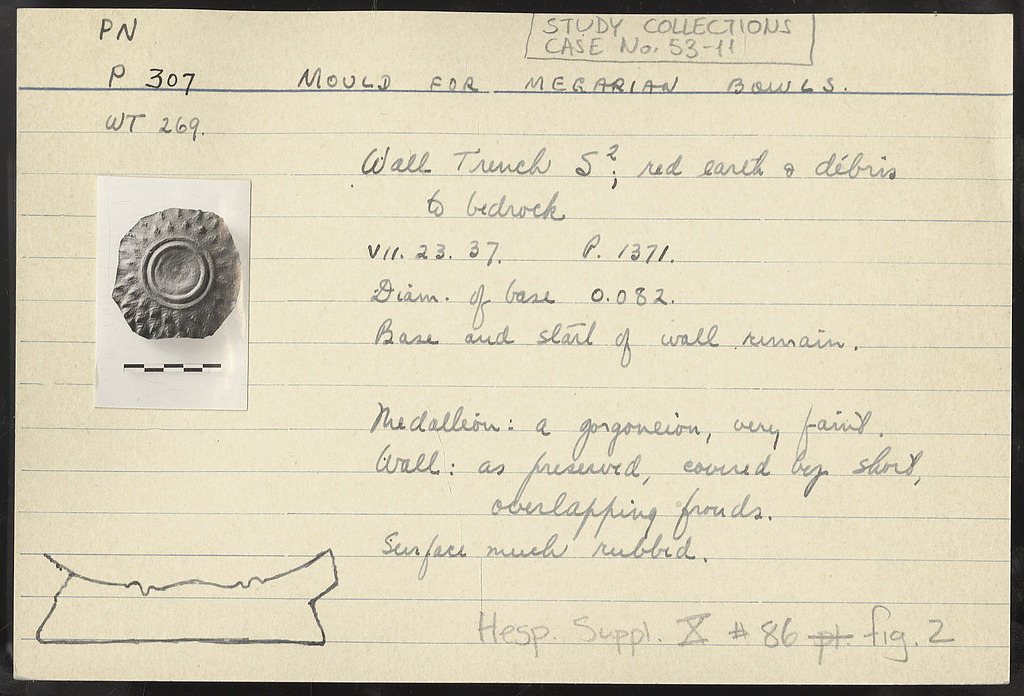 PN
STUDY COLLECTIONS
CASE No. 53-11
P 307 MOULD FOR MEGARIAN BOWLS.
WT 269.
Wall Trench S²; red earth & débris
to bedrock
VII. 23. 37. P. 1371.
Diam. of base 0.082.
Base and start of wall remain.
Medallion: a gorgoneion, very faint.
Wall: as preserved, covered by short,
overlapping fronds.
Surface much rubbed.
Hesp. Suppl. X # 86 pt. fig. 2